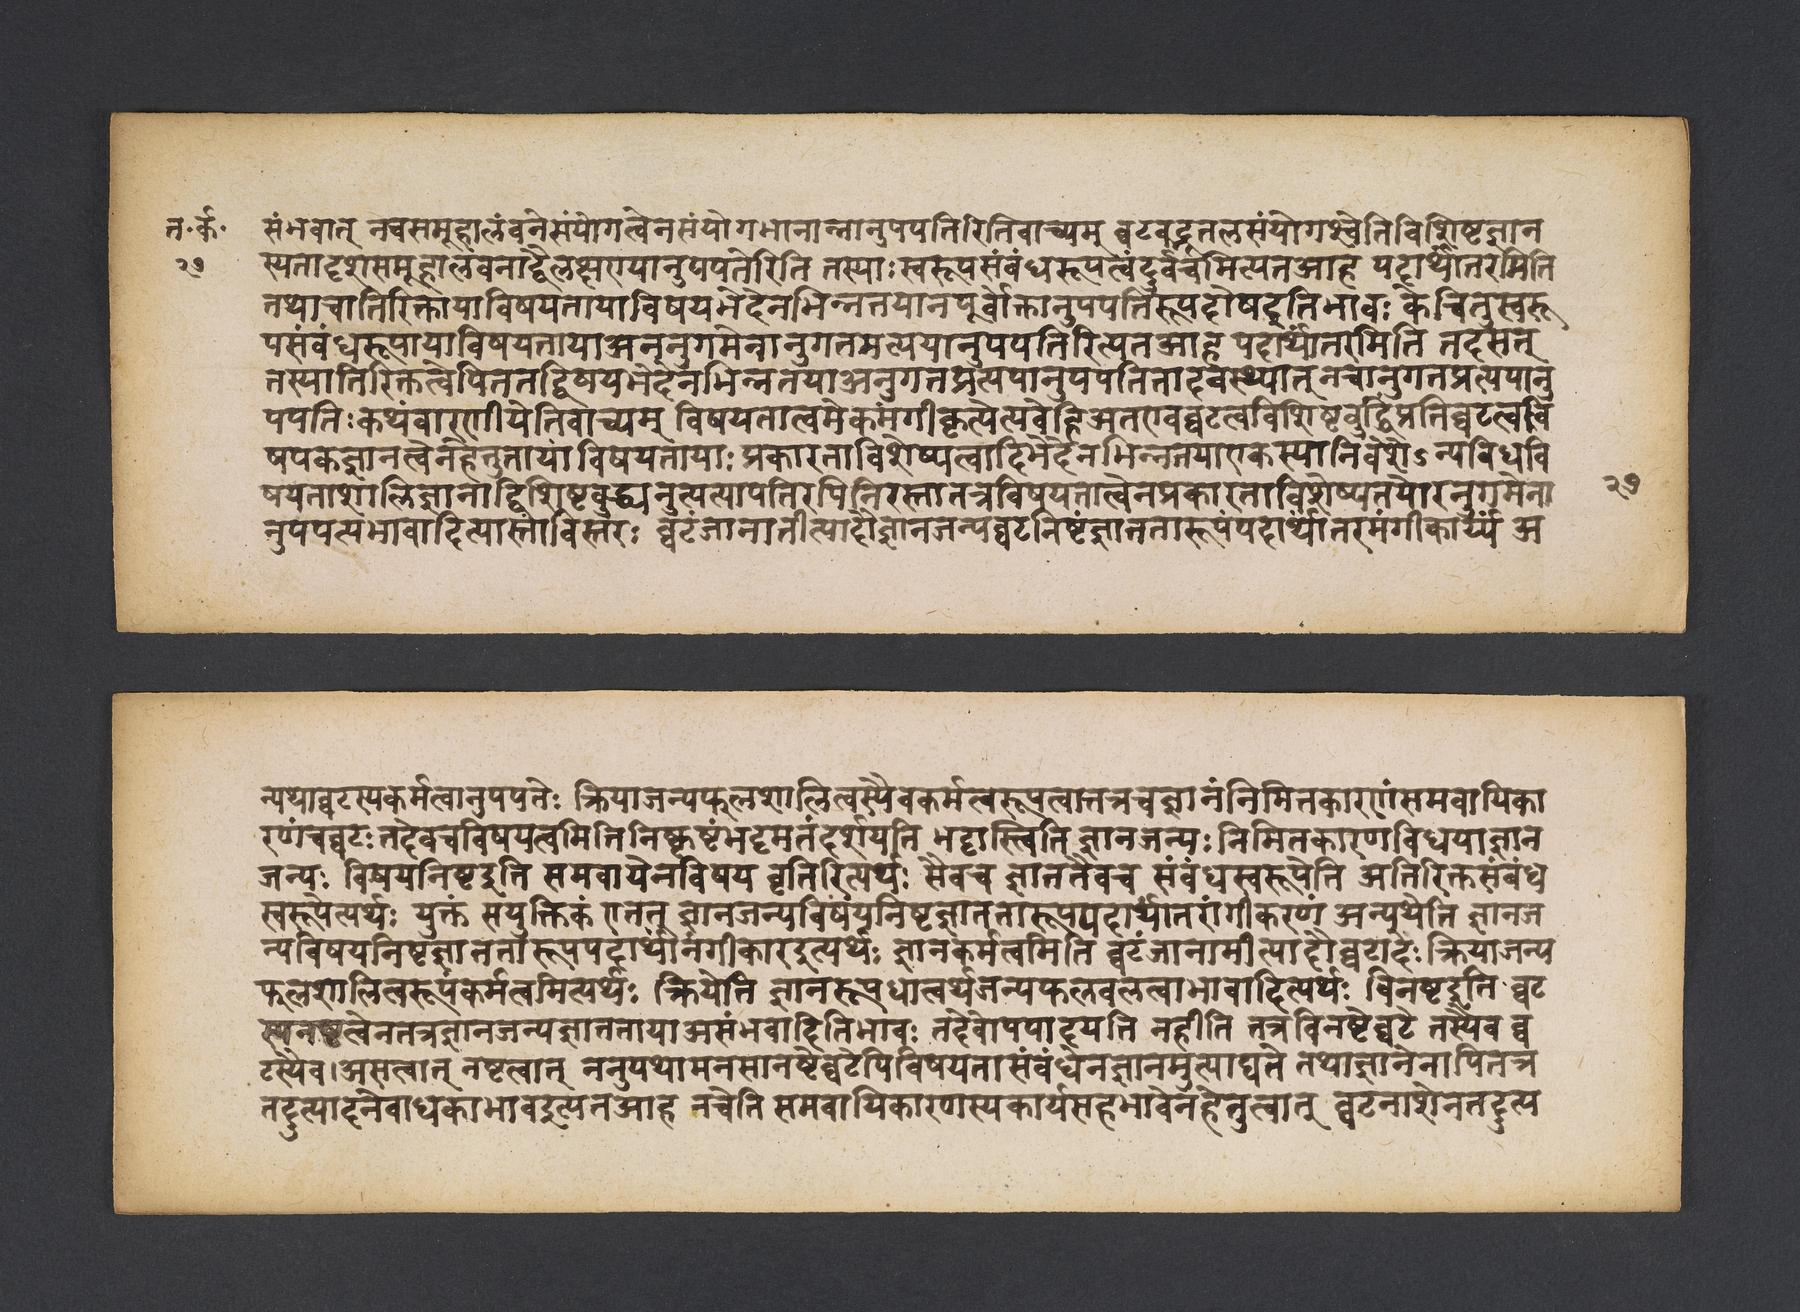 त॰र्क॰
२७
संभवात् नचसमूहालंबनेसंयोगत्वेनसंयोगभानान्नानुपपत्तिरितिवाच्यम् घटवद्भूतलसंयोगश्चेतिविशिष्टज्ञान
स्यतादृशसमूहालंबनाद्वैलक्षण्यानुपपत्तेरिति तस्याःस्वरूपसंबंधरूपत्वंदुर्वचमित्यतआह पदार्थांतरमिति
तथाचातिरिक्तायाविषयतायाविषयभेदेनभिन्नतयानपूर्वोक्तानुपपत्तिरूपदोषइतिभावः केचित्तुस्वरू
पसंबंधरूपायाविषयतायाअननुगमेनानुगतप्रत्ययानुपपत्तिरित्यतआह पदार्थांतरमिति तदसत्
तस्यातिरिक्तत्वेपितत्तद्विषयभेदेनभिन्नतयाअनुगतप्रत्ययानुपपत्तितादवस्थ्यात् नचानुगतप्रत्ययानु
पपत्तिःकथंवारणीयेतिवाच्यम् विषयतात्वमेकमंगीकृत्येत्यवेहिअतएवघटत्वविशिष्टबुद्धिंप्रतिघटत्ववि
षयकज्ञानत्वेनहेतुतायांविषयतायाः प्रकारताविशेष्यत्वादिभेदेनभिन्नतयाएकस्यानिवेशेऽन्यविधवि
षयताशालिज्ञानाद्विशिष्टबुद्ध्यनुत्पत्त्यापत्तिरपिनिरस्तातत्रविषयतात्वेनप्रकारताविशेष्यतयोरनुगमेना
२७
नुपपत्त्यभावादित्यास्तांविस्तरः घटंजानातीत्यादौज्ञानजन्यघटनिष्टंज्ञाततारूपंपदार्थांतरमंगीकार्य्यं अ
न्यथाघटस्यकर्मत्वानुपपत्तेः क्रियाजन्यफलशालित्वस्यैवकर्मत्वरूपत्वात्तत्रचज्ञानंनिमित्तकारणंसमवायिका
रणंचघटःतदेवचविषयत्वमितिनिष्कृष्टंभट्टमतंदर्शयति भट्टास्त्विति ज्ञानजन्यः निमित्तकारणविधयाज्ञान
जन्यः विषयनिष्टइति समवायेनविषय वृत्तिरित्यर्थः सैवच ज्ञाततैवच संबंधस्वरूपेति अतिरिक्तसंबंध
स्वरूपेत्यर्थः युक्तं सयुक्तिकं एतत् ज्ञानजन्यविषयनिष्टज्ञाततारूपपदार्थांतरांगीकरणं अन्यथेति ज्ञानज
न्यविषयनिष्टज्ञाततारूपपदार्थानंगीकारइत्यर्थः ज्ञानकर्मत्वमिति घटंजानामीत्यादौघटादेः क्रियाजन्य
फलशालित्वरूपंकर्मत्वमित्यर्थः क्रियेति ज्ञानरूपधात्वर्थजन्यफलवत्वाभावादित्यर्थः विनष्टइति घट
स्यनष्टत्वेनतत्रज्ञानजन्यज्ञाततायाअसंभवादितिभावः तदेवोपपादयति नहीति तत्रविनष्टेघटे तस्यैव घ
टस्यैव।असत्वात् नष्टत्वात् ननुयथामनसानष्टेघटेपिविषयतासंबंधेनज्ञानमुत्पाद्यते तथाज्ञानेनापितत्र
तदुत्पादनेबाधकाभावइत्यतआह नचेति समवायिकारणस्यकार्यसहभावेनहेतुत्वात् घटनाशेनतदुत्प